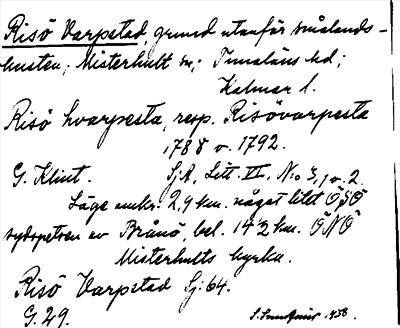 Risö Varpstad, grund utanför smålands-
kusten; Misterhult sn; Tunaläns hd;
Kalmar l.
Risö hvarpesta, resp. Risövarpesta
1788 o. 1792.
G. Klint. S:A, Litt. VI, N:o 3, 1, o. 2.
Läge omkr. 2,9 km. något litet ÖSÖ
sydspetsen av Brånö, bel. 14,2 km. ÖNÖ
Misterhults kyrka.
Risö Varpstad Sj: 64.
G. 29. 1938.